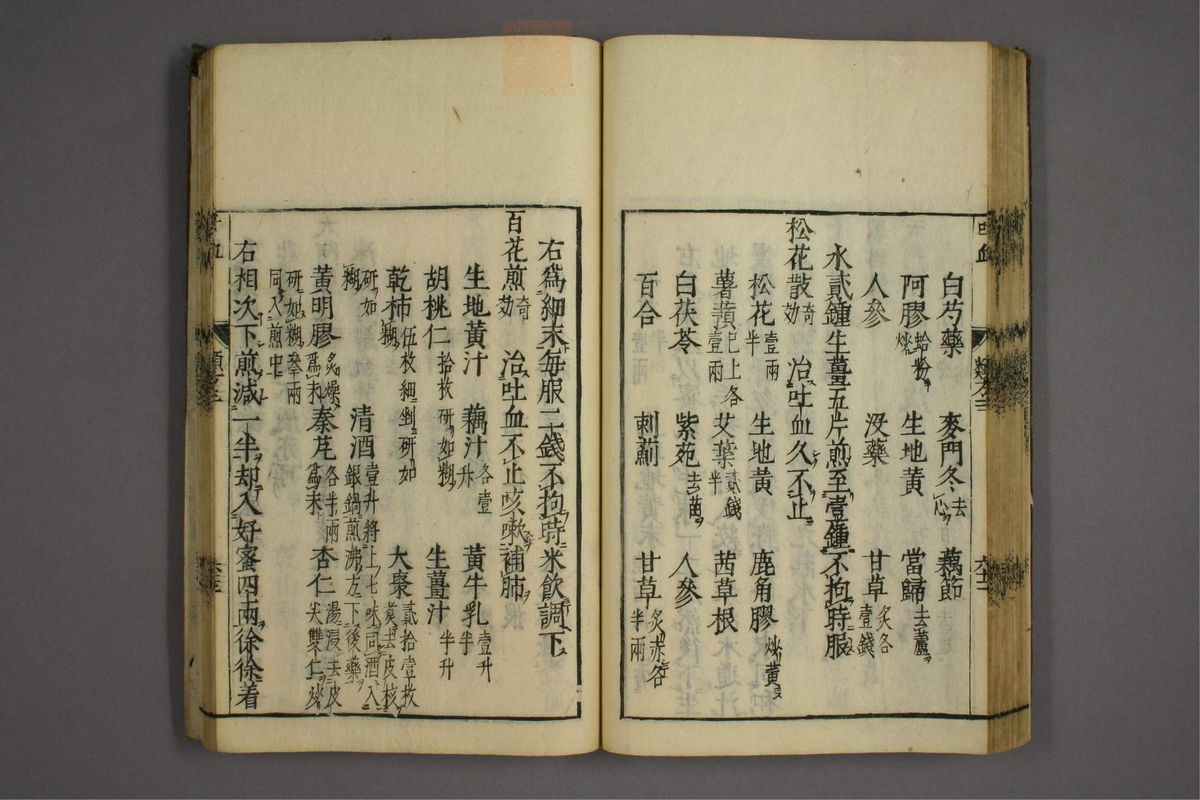 白芍藥 麥門冬去心 藕節
阿膠蛤粉炒 生地黃 當歸去蘆
人參 沒藥 甘草炙各壹錢
水貳鍾生薑五片煎至壹鍾不拘時服
松花散奇効 治吐血久不止
松花壹兩半 生地黃 鹿角膠炒黃
薯蕷已上各壹兩 艾葉貳錢半 茜草根
白茯苓 紫苑去苗 人參
百合 刺薊 甘草炙赤各半兩
右爲細末每服二錢不拘時米飲調下
百花煎奇効 治吐血不止咳嗽補肺
生地黃汁 藕汁各壹升 黃牛乳壹升半
胡桃仁拾枚研如糊 生薑汁半升
乾柿伍枚細剉研如糊 大棗貳拾壹枚煑去皮核研如糊
清酒壹升將上七味同酒入銀鍋煎沸方下後藥
黃明膠炙燥爲末 秦艽各半兩爲末 杏仁湯浸去皮尖雙仁炒研如糊叄兩同入煎中
右相次下煎減一半却入好蜜四兩徐徐着